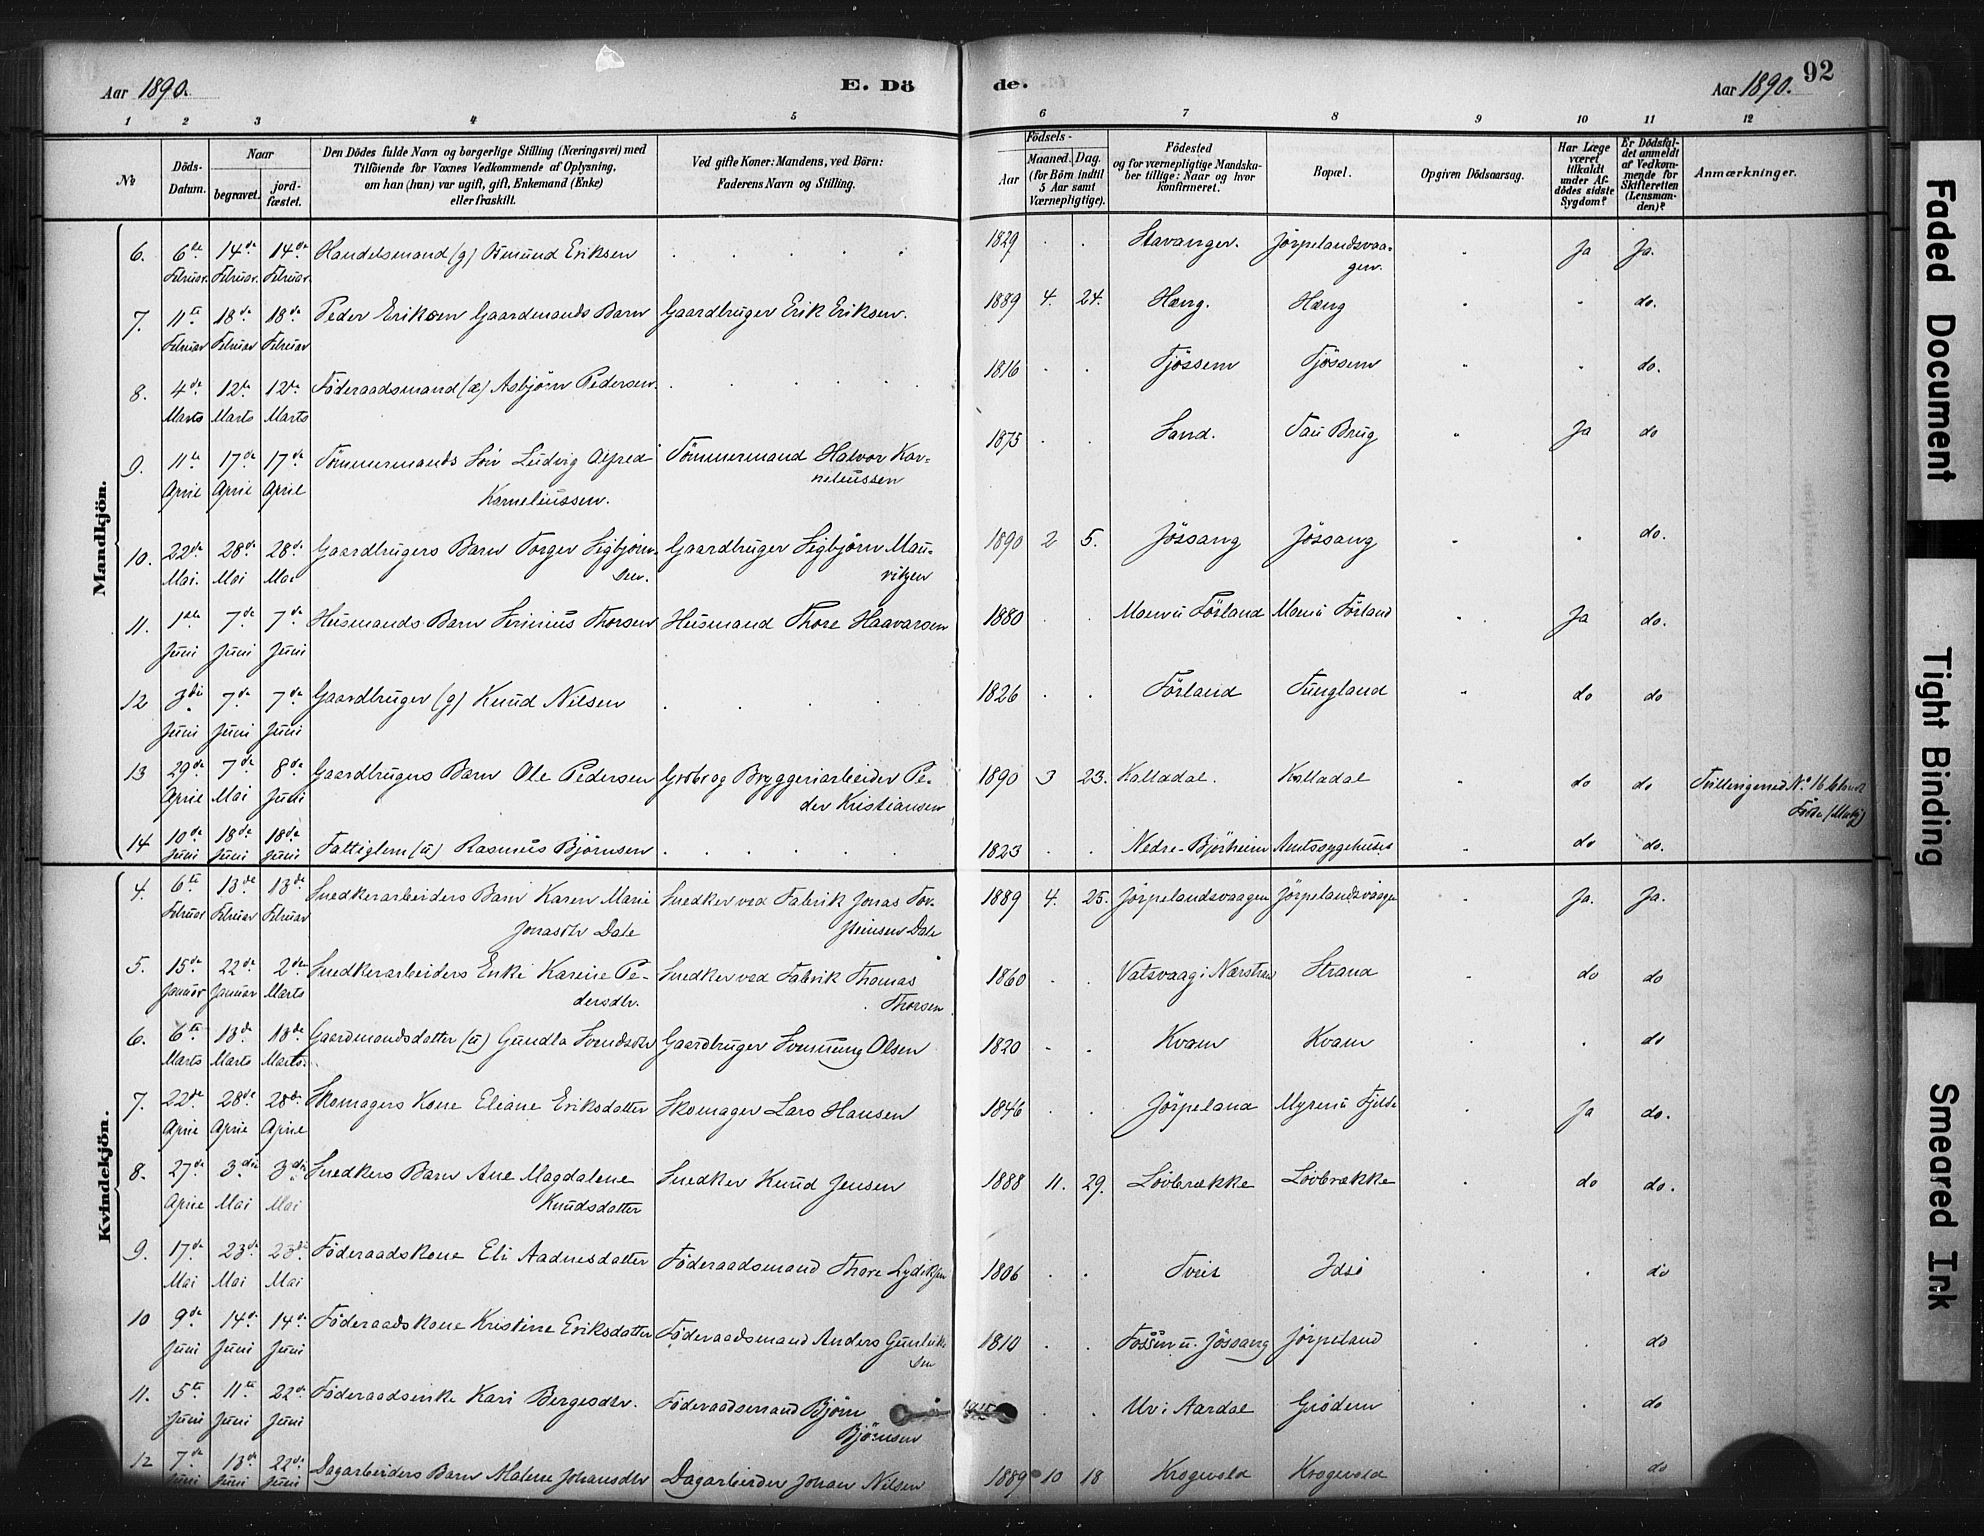 Aar 1890.
E. Dö
de.
Aar 1890.
92
1 2 3 4 5 6 7 8 9 10 11 12
№
Döds-Datum.
Naar
begravet.
jord-fæstet.
Den Dödes fulde Navn og borgerlige Stilling (Næringsvei) med
Tilföiende for Voxnes Vedkommende af Oplysning,
om han (hun) var ugift, gift, Enkemand (Enke)
eller fraskilt.
Ved gifte Koner: Mandens, ved Börn:
Faderens Navn og Stilling.
Födsels-
Aar
Maaned. Dag.
(for Börn indtil
5 Aar samt
Værnepligtige).
Födested
og for værnepligtige Mandska-
ber tillige: Naar og hvor
konfirmeret.
Bopæl.
Opgiven Dödsaarsag.
Har Læge
været
tilkaldt
under Af-
dödes sidste
Sygdom?
Er Dödsfal-
det anmeldt
af Vedkom-
mende for
Skifteretten
(Lensman-
den)?
Anmærkninger.
Mandkjön.
6. 6te Februar. 14de Februar. 14de Februar. Handelsmand (g) Amund Eriksen 1829 Stavanger. Jörpelandsvaa-
gen. Ja Ja.
7. 11te Februar 18de Februar 18de Februar Peder Eriksen Gaardmands Barn Gaardbruger Erik Eriksen. 1889 4. 24. Heng. Heng do.
8. 4de Marts 12te Marts 12te Marts Föderaadsmand (æ) Asbjörn Pedersen 1816 Tjössem Tjössem do.
9. 11te April 17de April 17de April Tömmermands Sön Ludvig Alfred
Karneliussen. Tömmermand Halvor Kar-
neliussen 1875 Sand. Tau Brug Ja do
10. 22de Mai. 28de Mai 28de Mai Gaardbrugers Barn Torger Sigbjörn-
sen. Gaardbruger Sigbjörn Mau-
ritzen 1890 2 5. Jössang Jössang do.
11. 1ste Juni 7de Juni 7de Juni Husmands Barn Sirinius Thorsen Husmand Thore Haavarsen 1880 Moen u Förland Moen u Förland Ja do.
12 3die Juni 7de Juni 7de Juni Gaardbruger (g) Knud Nilsen 1826 Förland Tungland do do
13 29de April 7de Mai 8de Juni Gaardbrugers Barn Ole Pedersen Grbr og Bryggeriarbeider Pe-
der Kristiansen 1890 3 23. Kalladal. Kalladal do do Tvilling med No 16 blandt
Födte (Mkj)
14 10de Juni 18de Juni 18de Juni Fattiglem (u) Rasmus Björnsen 1823 Nedre-Björheim Amtssygehuset do do.
Kvindekjön.
4. 6te Februar 13de Februar 13de Februar Snedkerarbeiders Barn Karen Marie
Jonasdtr Dale Snedker ved Fabrik Jonas Tor-
steinsen Dale 1889 4. 25. Jörpelandsvaagen Jörpelandsvaagen Ja. Ja.
5. 15de Januar 22de Januar 2den Marts Snedkerarbeiders Enke Karine Pe-
dersdtr. Snedker ved Fabrik Thomas
Thorsen 1860 Vatsvaag i Nærstrand Strand do do
6. 6te Marts 13de Marts 13de Marts. Gaardmandsdatter (u) Gundla Svendsdtr Gaardbruger Svenung Olsen 1820 Kvam Kvam do
7. 22de April 28de April 28de April Skomagers Kone Eliane Eriksdatter Skomager Lars Hansen 1846 Jörpeland Myren u Fjelde Ja do.
8. 27de April 3die Mai 3die Mai Snedkers Barn Ane Magdalene
Knudsdatter Snedker Knud Jensen 1888 11. 29. Lövbrække Lövbrække do do.
9. 17de Mai 23de Mai 23de Mai Föderaadskone Eli Aadnesdatter Föderaadsmand Thore Lydiksen 1806 Tveit Idsö do
10 9de Juni 14de Juni 14de Juni Föderaadskone Kristine Eriksdatter Föderaadsmand Anders Gunleik-
sen 1810 Fossen u. Jössang Jörpeland do
11. 5te Juni 11te Juni 22de Juni Föderaadsenke Kari Bergesdtr. Föderaadsmand Björn
Björnsen Ur i Aardal Grödem do
12 7de Juni 13de Juni 22de Juni Dagarbeiders Barn Malene Johansdtr Dagarbeider Johan Nilsen 1889 10 18 Krogevold Krogevold do
Faded Document
Tight Binding
Smeared Ink